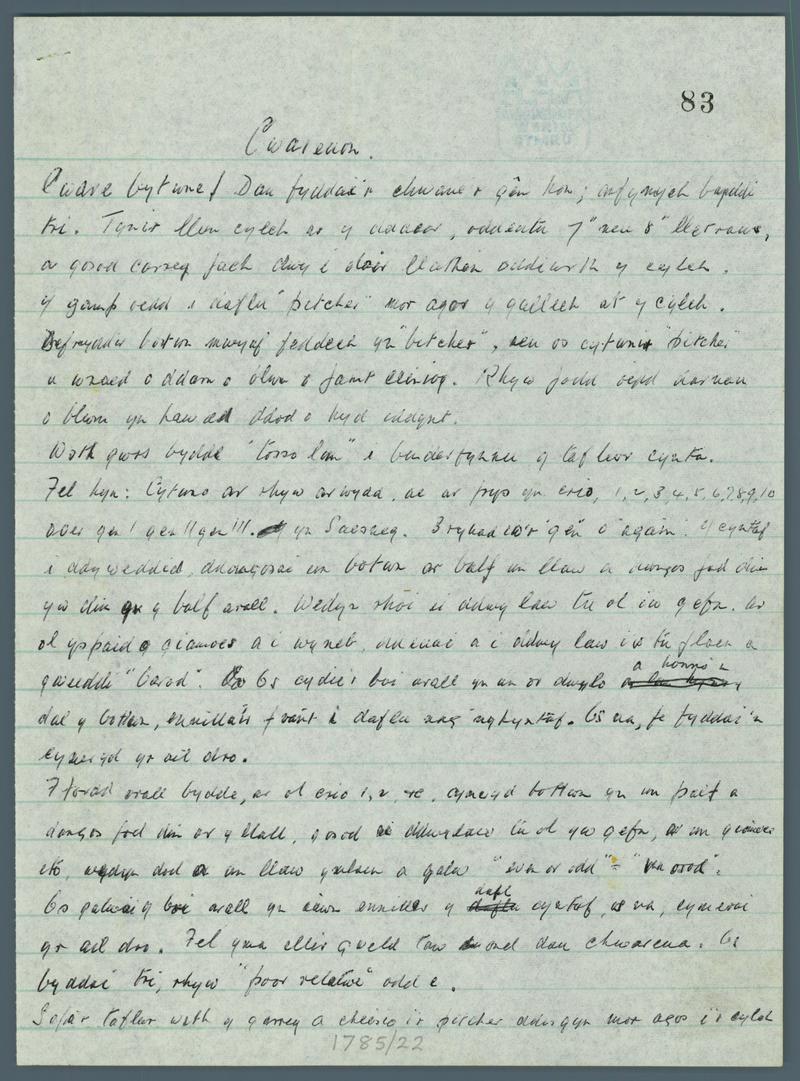 83
Cwareuon.
Cware bytwne! Dau fyddai'r chwane r gên hon; anfynych byddai
tri. Tynir llun cylch ar y ddaear, oddeutu 7" neu 8" lletraws,
a gosod carreg fach dwy i dair llathen oddiwrth y cylch.
Y gamp oedd i daflu "pitcher" mor agos y gallech at y cylch.
botwn mwyaf feddech yn "bitcher", neu os cytunir "pitcher"
u wnaed o ddarn o blwm o faint ceiniog. Rhyw fodd oedd darnau
o blwm yn hawdd dod o hyd iddynt.
Wrth gwrs bydde "tosso lan" i benderfynnu y taflwr cynta.
Fel hyn: Cytuno ar rhyw arwydd, ac ar frys yn crio, 1, 2, 3, 4, 5, 6, 7, 8, 9, 10
over gen! gen!! gen!!!. yn Saesneg. Byrhad o'r gên o "again". Y cyntaf
i ddyweddid, ddangosai un botwn ar balf un llaw a dangos fod dim
yw dim yn y balf arall. Wedyn rhoi ei ddwy law tu ol iw gefn. ar
ol yspaid o giamocs a i wyneb, ddeuai a i ddwy law i'r tu flaen a
gweiddi "barod". Os cydie'r boi arall yn un or dwylo a honno'n
dal y botwn, enillai'r fraint i daflu yn gyntaf. Os na, fe fyddai'n
cymeryd yr ail dro.
Ffordd arall bydde, ar ol crio 1, 2, etc, cymeryd bottwn yn un palf a
dangos fod dim ar y llall, gosod ei ddwylaw tu ol yw gefn, ar un giamocs
etc, wedyn dod a un llaw ymlaen a galw "even or odd" = "
Os galwai y boi arall yn iawn enillai y dafl cyntaf, os na, cymerai
yr ail dro. Fel yma ellir gweld taw ond dau chwareua. Os
byddai tri, rhyw "poor relative" odd e.
Safai'r taflwr wrth y garreg a cheisio i'r pitcher ddisgyn mor agos i'r cylch
1785/22